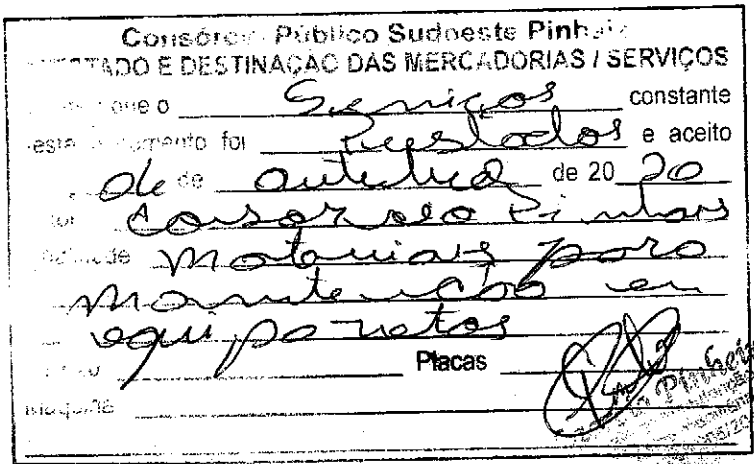 Consórcio Público Sudoeste Pinhais
E DESTINAÇÃO DAS MERCADORIAS / SERVIÇOS
que o Serviços constante
documento foi Prestados e aceito
de de outubro de 20 20
Consorcio Pinhais
Materiais para
Manutencao em
equipametos
Placas
maquina
Pinhei